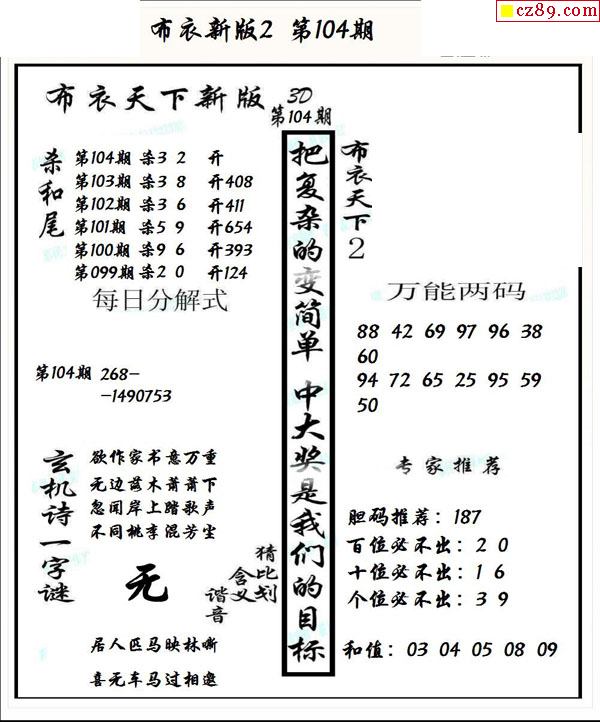 cz89.com
布衣新版2 第104期
布衣天下新版 3D
第104期
杀和尾
第104期 杀3 2 开
第103期 杀3 8 开408
第102期 杀3 6 开411
第101期 杀5 9 开654
第100期 杀9 6 开393
第099期 杀2 0 开124
每日分解式
第104期 268-
-1490753
玄机诗一字谜
欲作家书意万重
无边落木萧萧下
忽闻岸上踏歌声
不同桃李混芳尘
无
猜比划
含义
谐音
居人匹马映林嘶
喜无车马过相邀
把复杂的变简单 中大奖是我们的目标
布衣天下2
万能两码
88 42 69 97 96 38
60
94 72 65 25 95 59
50
专家推荐
胆码推荐：187
百位必不出：2 0
十位必不出：1 6
个位必不出：3 9
和值：03 04 05 08 09